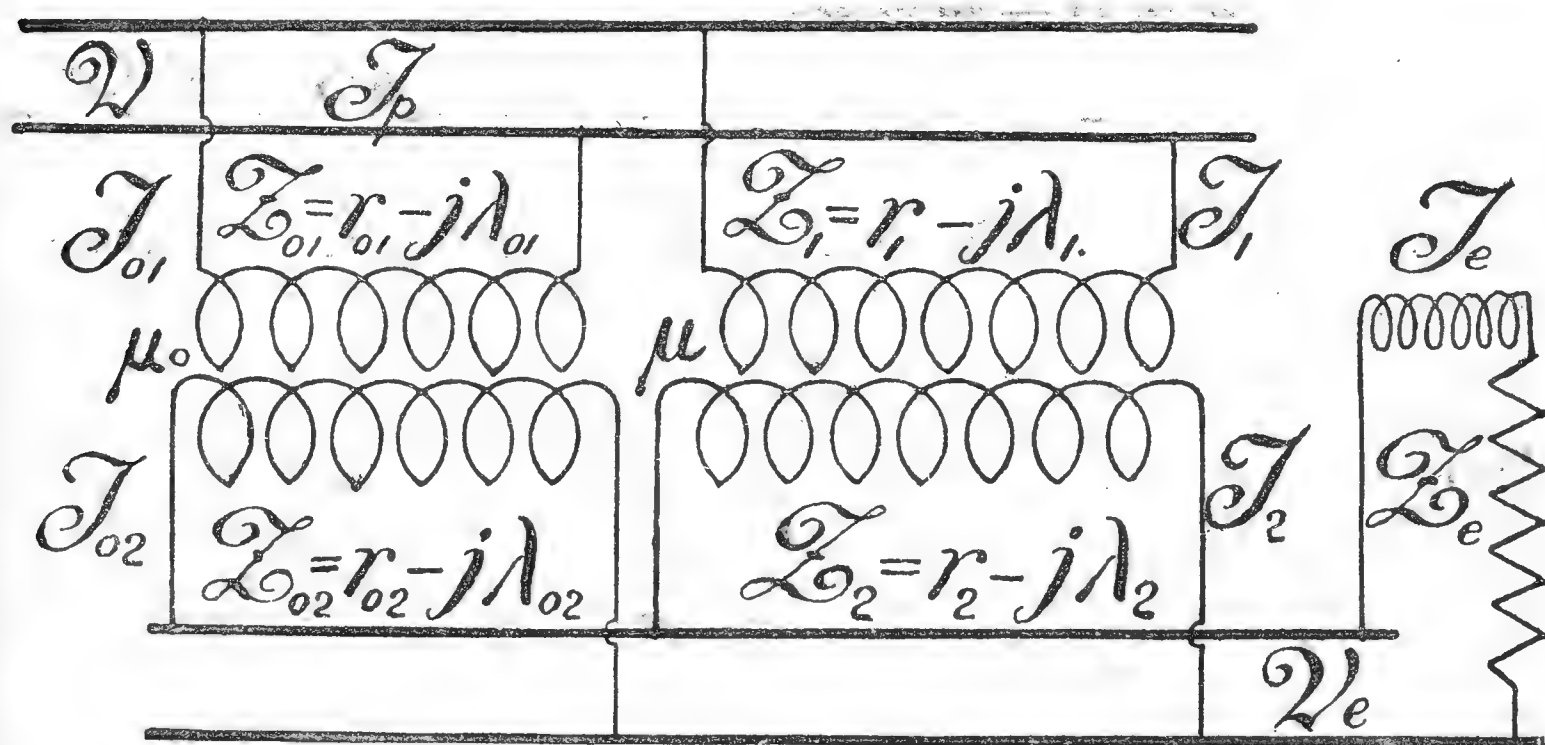 𝒱
I_p
I_01
Z_01 = r_01 - jλ_01
Z_1 = r_1 - jλ_1.
I_1
I_e
μ_0
μ
I_02
Z_02 = r_02 - jλ_02
Z_2 = r_2 - jλ_2
I_2
Z_e
𝒱_e